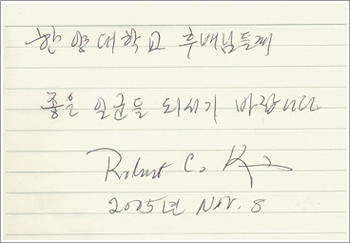 한양대학교 후배님들께
좋은 일군들 되시기 바랍니다
Robert C. Kim
2005년 Nov. 8